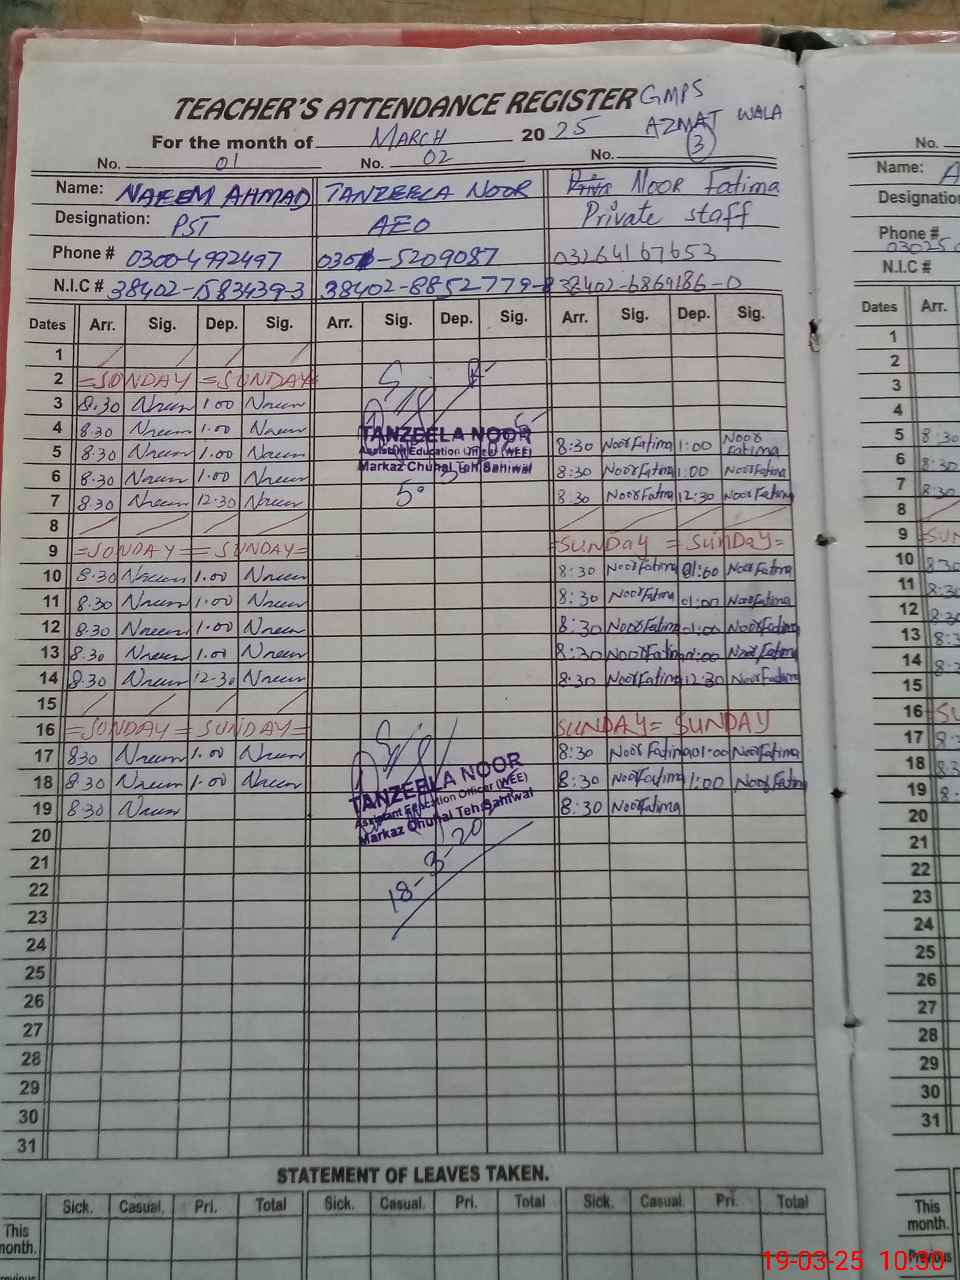 TEACHER'S ATTENDANCE REGISTER GMPS
For the month of MARCH 2025 AZMAT WALA
No. 01 No. 02 No. 3
Name: NAEEM AHMAD TANZEELA NOOR Noor Fatima
Designation: PST AEO Private staff
Phone # 0300-4992497 -5209087 03264167653
N.I.C # 38402-1583439-3 38402-8852779- 38402-6869186-0
Dates Arr. Sig. Dep. Sig. Arr. Sig. Dep. Sig. Arr. Sig. Dep. Sig.
1
2 =SUNDAY =SUNDAY=
3 8.30 Naeem 1.00 Naeem
4 8.30 Naeem 1.00 Naeem
5 8.30 Naeem 1.00 Naeem 8:30 Noor Fatima 1:00 Noor Fatima
6 8.30 Naeem 1.00 Naeem 8:30 Noor Fatima 1:00 Noor Fatima
7 8.30 Naeem 12.30 Naeem 8:30 Noor Fatima 12:30 Noor Fatima
TANZEELA NOOR
Assistant Education Officer (WEE)
Markaz Chuhal Teh Sahiwal
8
9 =SUNDAY== SUNDAY= =SUNDAY =SUNDAY=
10 8.30 Naeem 1.00 Naeem 8:30 Noor Fatima 01:00 Noor Fatima
11 8.30 Naeem 1.00 Naeem 8:30 Noor Fatima 01:00 Noor Fatima
12 8.30 Naeem 1.00 Naeem 8:30 Noor Fatima 01:00 Noor Fatima
13 8.30 Naeem 1.00 Naeem 8:30 Noor Fatima 01:00 Noor Fatima
14 8.30 Naeem 12.30 Naeem 8:30 Noor Fatima 12:30 Noor Fatima
15
16 =SUNDAY= SUNDAY= SUNDAY= SUNDAY
17 830 Naeem 1.00 Naeem 8:30 Noor Fatima 01:00 Noor Fatima
18 8.30 Naeem 1.00 Naeem 8:30 Noor Fatima 1:00 Noor Fatima
19 8.30 Naeem 8:30 Noor Fatima
TANZEELA NOOR
Assistant Education Officer (WEE)
Markaz Chuhal Teh Sahiwal
18-3-20
20
21
22
23
24
25
26
27
28
29
30
31
STATEMENT OF LEAVES TAKEN.
Sick. Casual. Pri. Total Sick. Casual. Pri. Total Sick. Casual. Pri. Total
This month.
No.
Name: A
Designation
Phone #
N.I.C #
Dates Arr.
1
2
3
4
5 8:30
6 8:30
7 8:30
8
9 =SUN
10 8:30
11 8:30
12 8:30
13
14
15
16
17
18
19
20
21
22
23
24
25
26
27
28
29
30
31
This month.
Previous
19-03-25 10:30